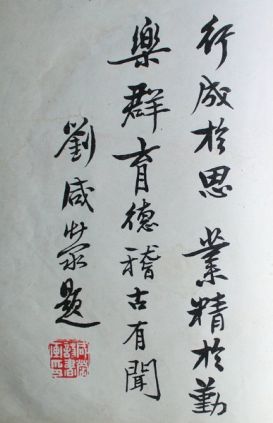 行成於思 業精於勤
樂群育德稽古有聞
劉咸滎題